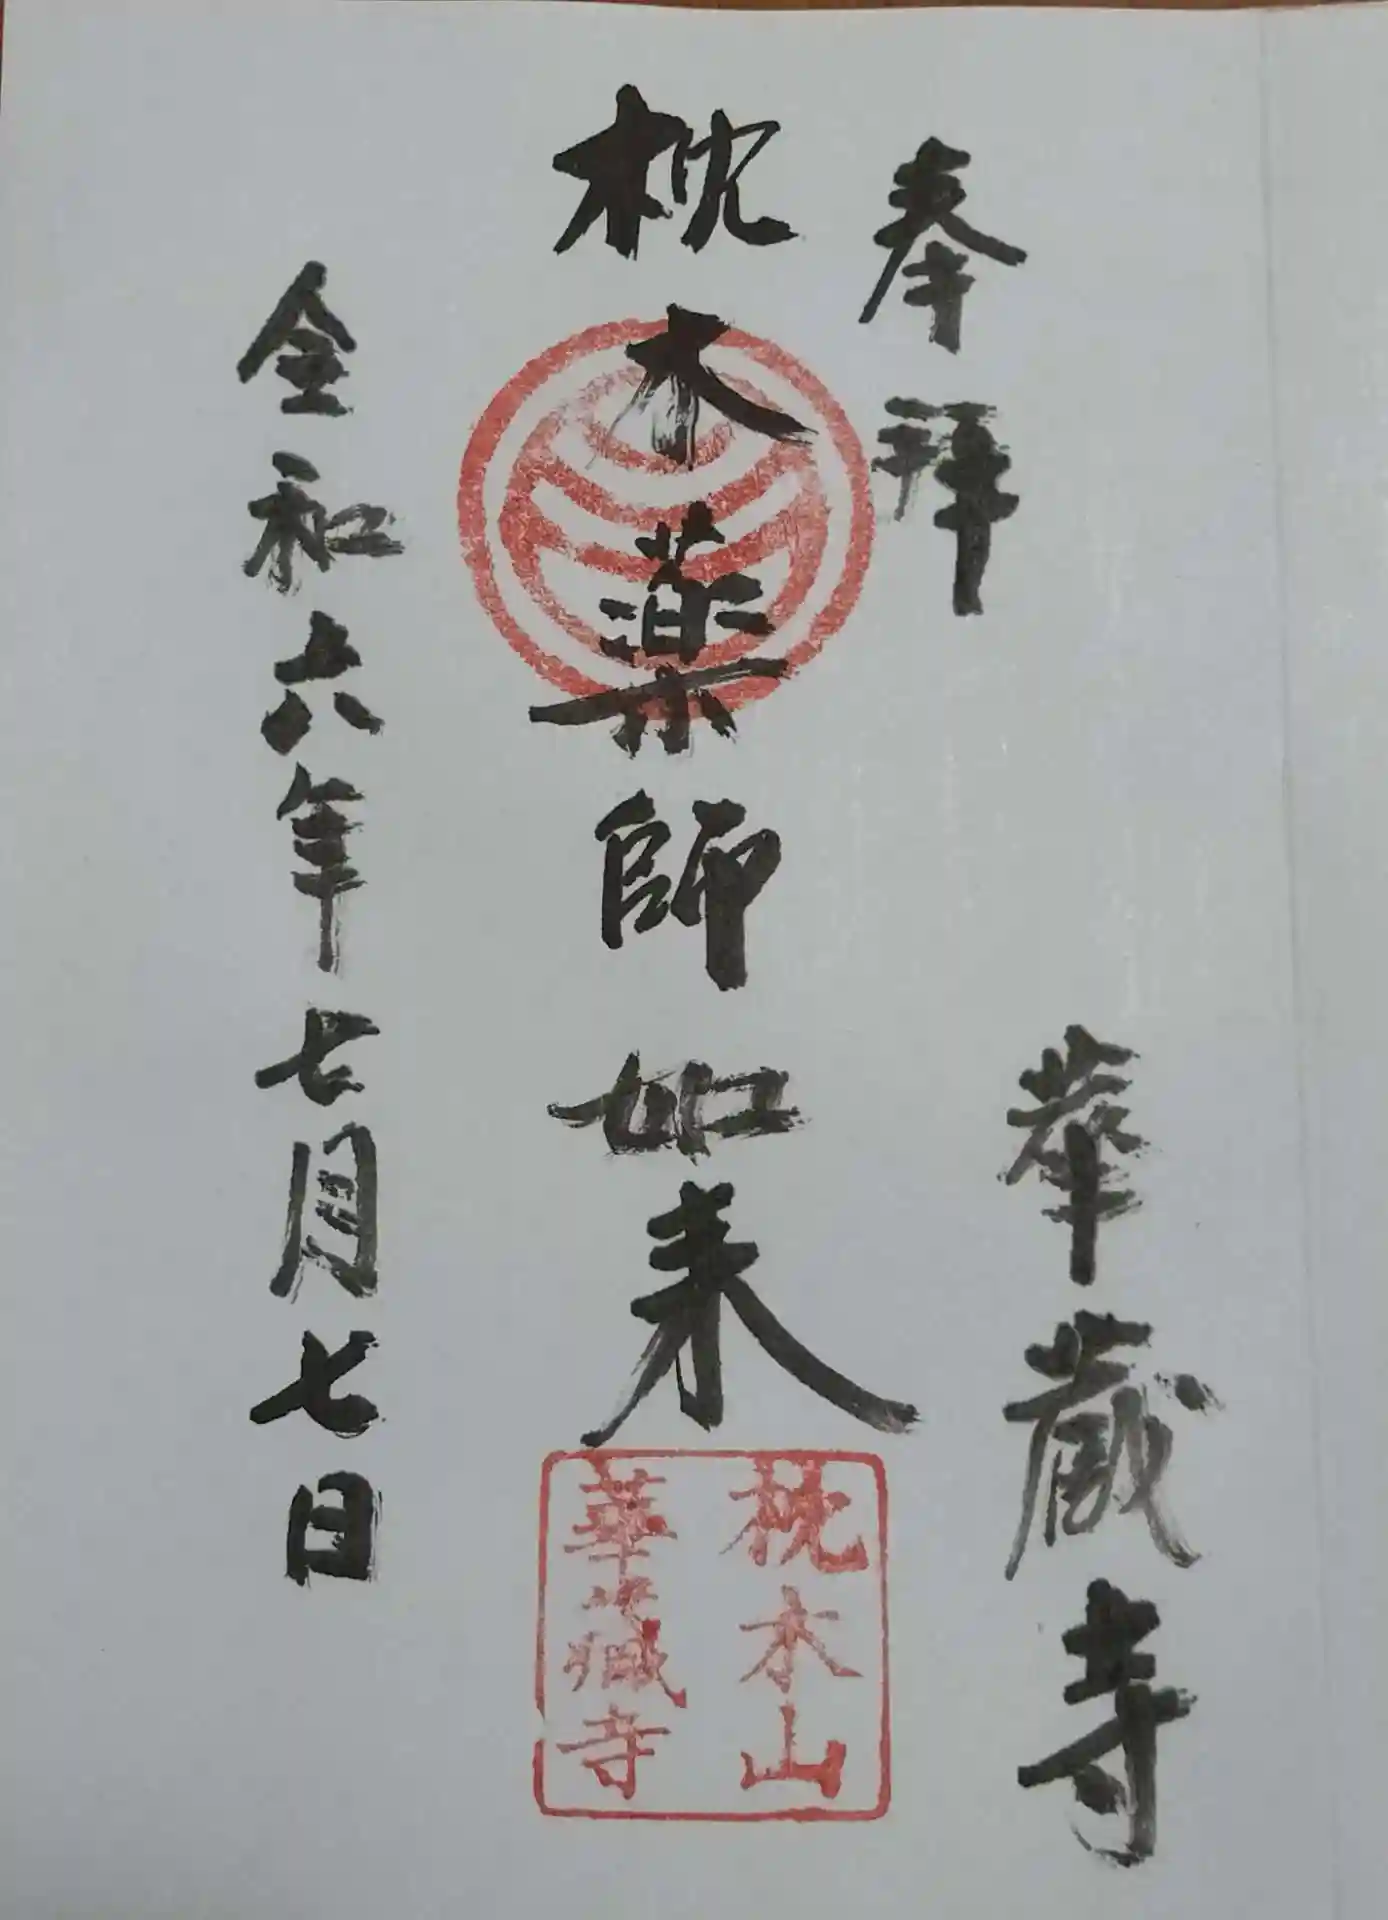 奉拝
華蔵寺
枕木薬師如来
枕木山
華蔵寺
令和六年七月七日